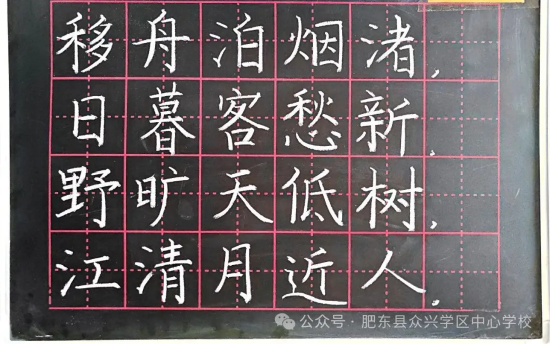 移舟泊烟渚,
日暮客愁新.
野旷天低树,
江清月近人.
公众号·肥东县众兴学区中心学校